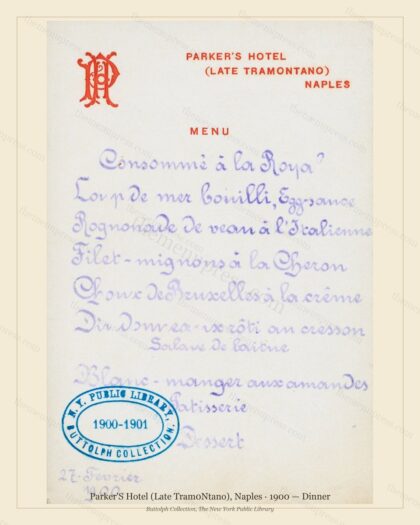 PARKER'S HOTEL
(LATE TRAMONTANO)
NAPLES
MENU
Consommé à la Roya
Loup de mer bouilli, Egg-sauce
Rognonade de veau à l'Italienne
Filet-mignons à la Cheron
Choux de Bruxelles à la crême
rôti au cresson
Salade de laitue
Blanc-manger aux amandes
Patisserie
Dessert
N. Y. PUBLIC LIBRARY,
1900-1901
BUTTOLPH COLLECTION.
27 Fevrier
Parker'S Hotel (Late TramoNtano), Naples - 1900 — Dinner
Buttolph Collection, The New York Public Library
themenupress.com